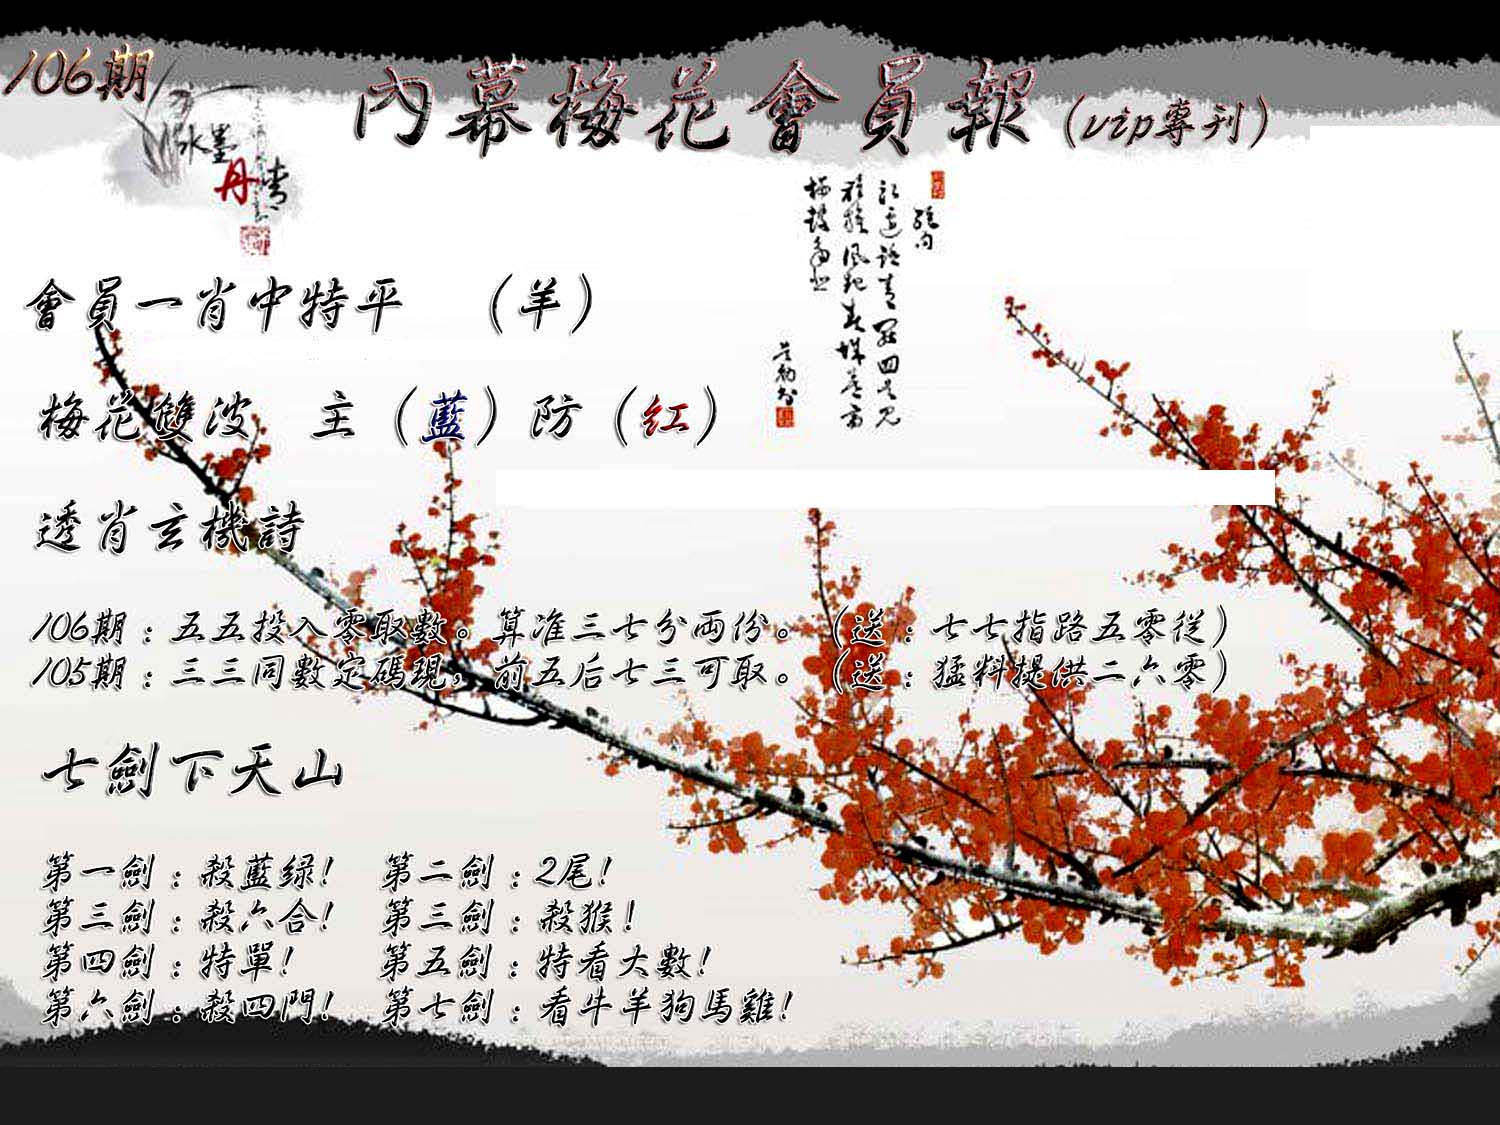 106期
內幕梅花會員報（vip專刊）
水墨
丹青
會員一肖中特平　（羊）
梅花雙波　主（藍）防（紅）
透肖玄機詩
106期：五五投入零取數。算准三七分両份。（送：七七指路五零從）
105期：三三同數定碼現，前五后七三可取。（送：猛料提供二六零）
七劍下天山
第一劍：殺藍绿！　第二劍：2尾！
第三劍：殺六合！　第三劍：殺猴！
第四劍：特單！　第五劍：特看大數！
第六劍：殺四門！　第七劍：看牛羊狗馬雞！